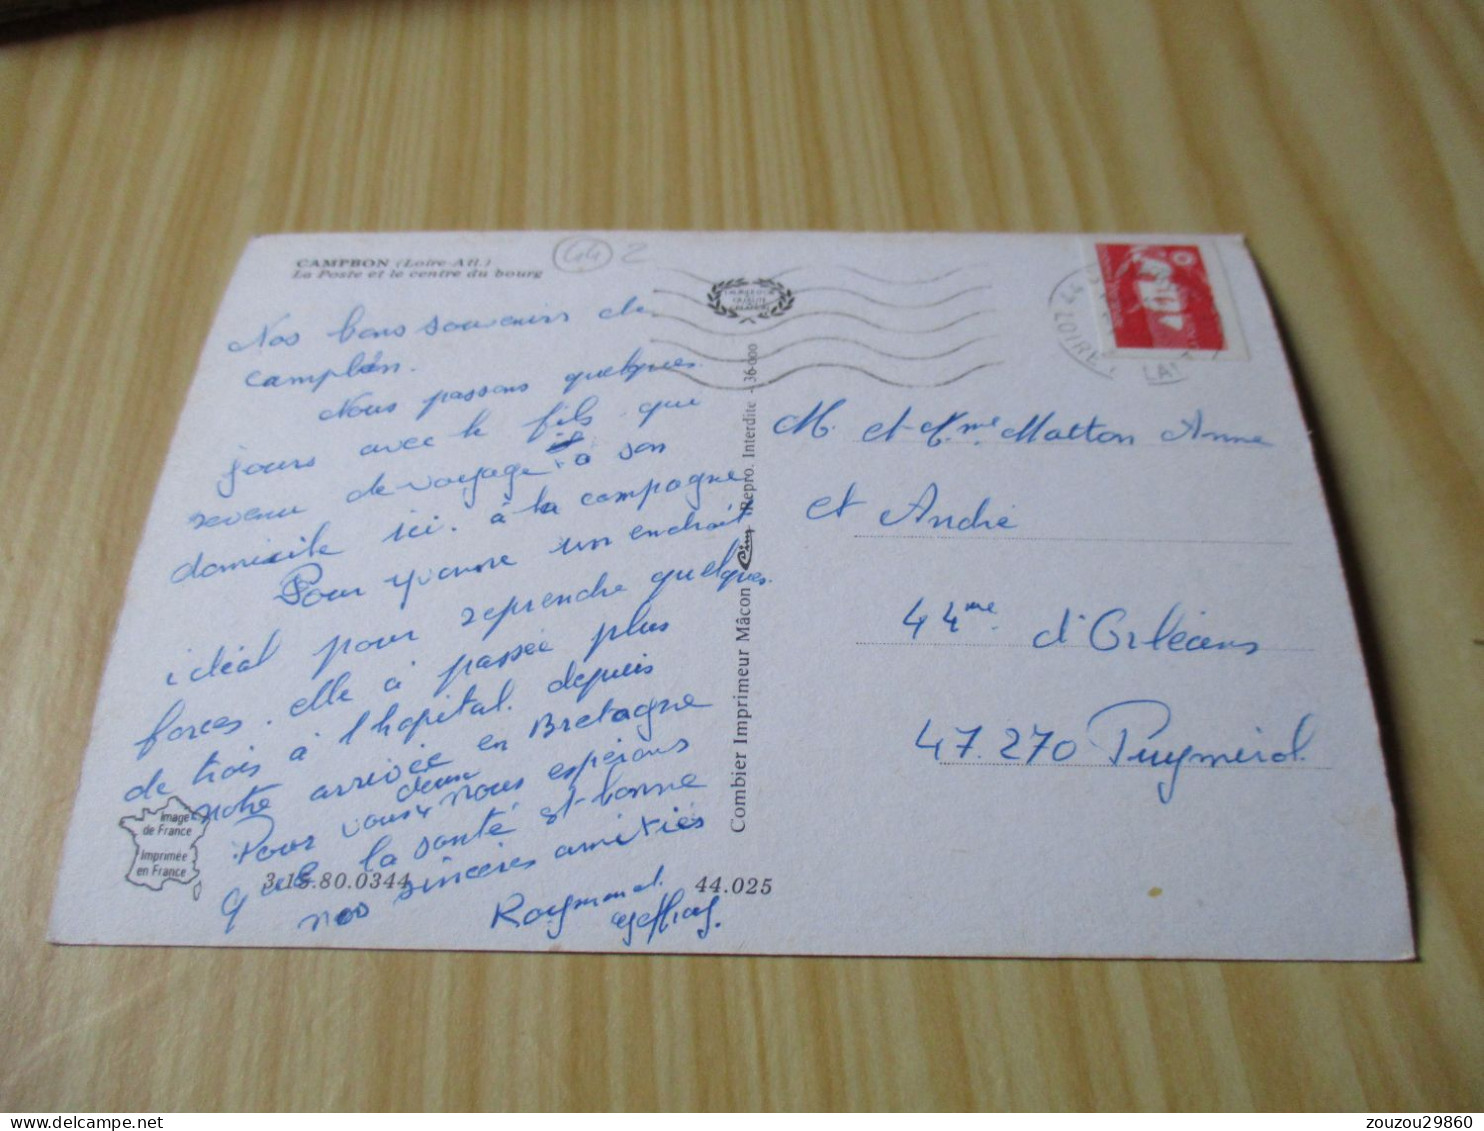 CAMPBON (Loire-Atl.)
La Poste et le centre du bourg
44 2
Nos bons souvenirs de
Campbon.
Nous passons quelques
jours avec le fils qui
revenu de voyage à son
domicile ici. à la campagne
Pour yvonne un endroit
idéal pour reprendre quelques
forces. elle à passée plus
de trois à l'hopital depuis
notre arrivée en Bretagne
Pour vous deux nous espérons
que la santé et bonne
nos sincères amitiés
Raymond.
Image
de France
Imprimée
en France
44.025
Combier Imprimeur Mâcon Cim Repro. Interdite - 36-000
M. et Mme Matton Anne
et André
44 me d'Orléans
47.270 Puymirol
zouzou29860